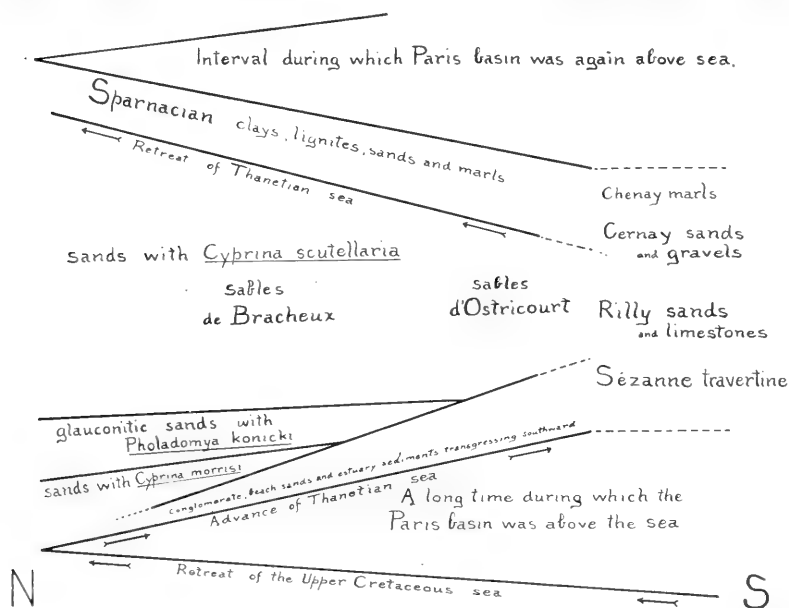 Interval during which Paris basin was again above sea.
Sparnacian clays, lignites, sands and marls
Retreat of Thanetian sea
Chenay marls
Cernay sands
and gravels
sands with Cyprina scutellaria
sables
de Bracheux
sables
d'Ostricourt
Rilly sands
and limestones
Sézanne travertine
glauconitic sands with
Pholadomya konicki
sands with Cyprina morrisi
Conglomerate, beach sands and estuary sediments transgressing southward
Advance of Thanetian sea
A long time during which the
Paris basin was above the sea
Retreat of the Upper Cretaceous sea
N
S